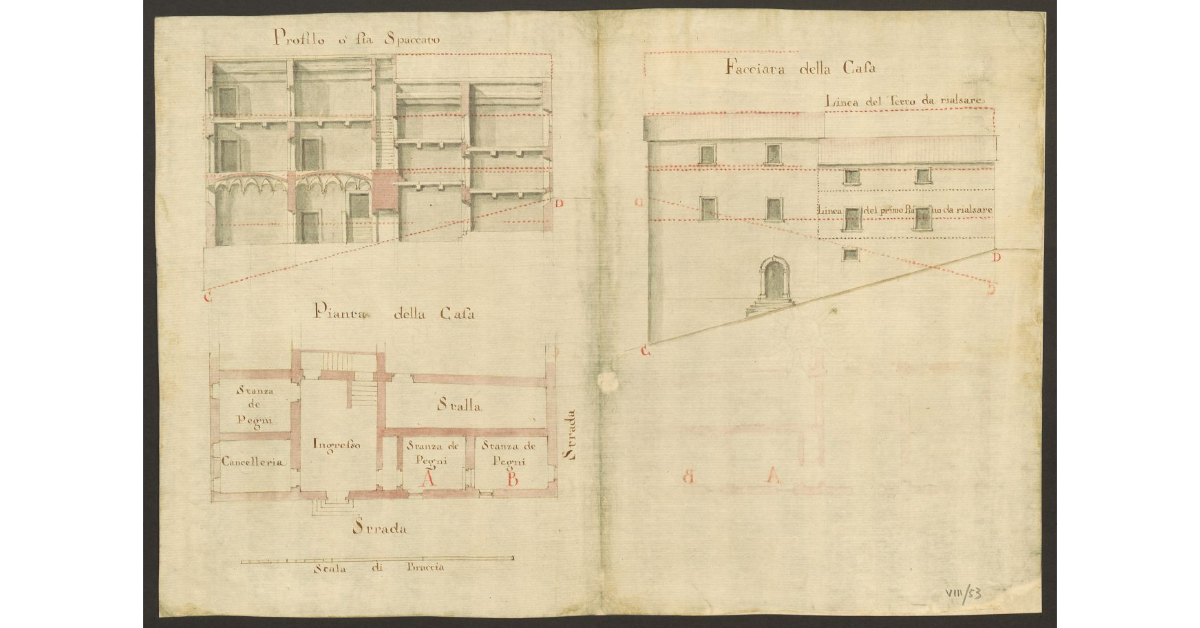 Profilo o' sia Spaccato
D
C
Pianta della Casa
Stanza
de
Pegni
Cancelleria
Ingresso
Stalla
Stanza de
Pegni
A
Stanza de
Pegni
B
Strada
Strada
Scala di Braccia
Facciata della Casa
Linea del Tetto da rialsare
Linea del primo Piano da rialsare
D
C
VIII/53